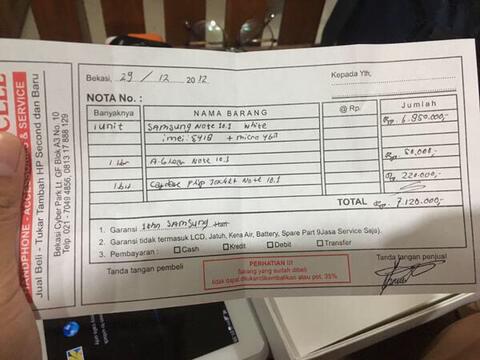 CELL
HANDPHONE - ACCESSORIES & SERVICE
Jual Beli - Tukar Tambah HP Second dan Baru
Bekasi Cyber Park Lt. GF Blok A3 No. 10
Telp. 021 - 7049 4856, 0813 17 888 129
Bekasi, 29 / 12 2012
Kepada Yth,
NOTA No. :
Banyaknya NAMA BARANG @ Rp. Jumlah
1 unit SAMSUNG Note 10.1 White Rp 6.850.000,-
imei: 8918 + micro 4GB
1 A-Glare Note 10.1 Rp 50.000,-
1 Flip Jacket Note 10.1 Rp 220.000,-
TOTAL Rp 7.120.000,-
1. Garansi SAMSUNG
2. Garansi tidak termasuk LCD, Jatuh, Kena Air, Battery, Spare Part 9Jasa Service Saja).
3. Pembayaran : Cash Kredit Debit Transfer
Tanda tangan pembeli
PERHATIAN !!!
Barang yang sudah dibeli
tidak dapat ditukar/dikembalikan atau pot. 35%
Tanda tangan penjual